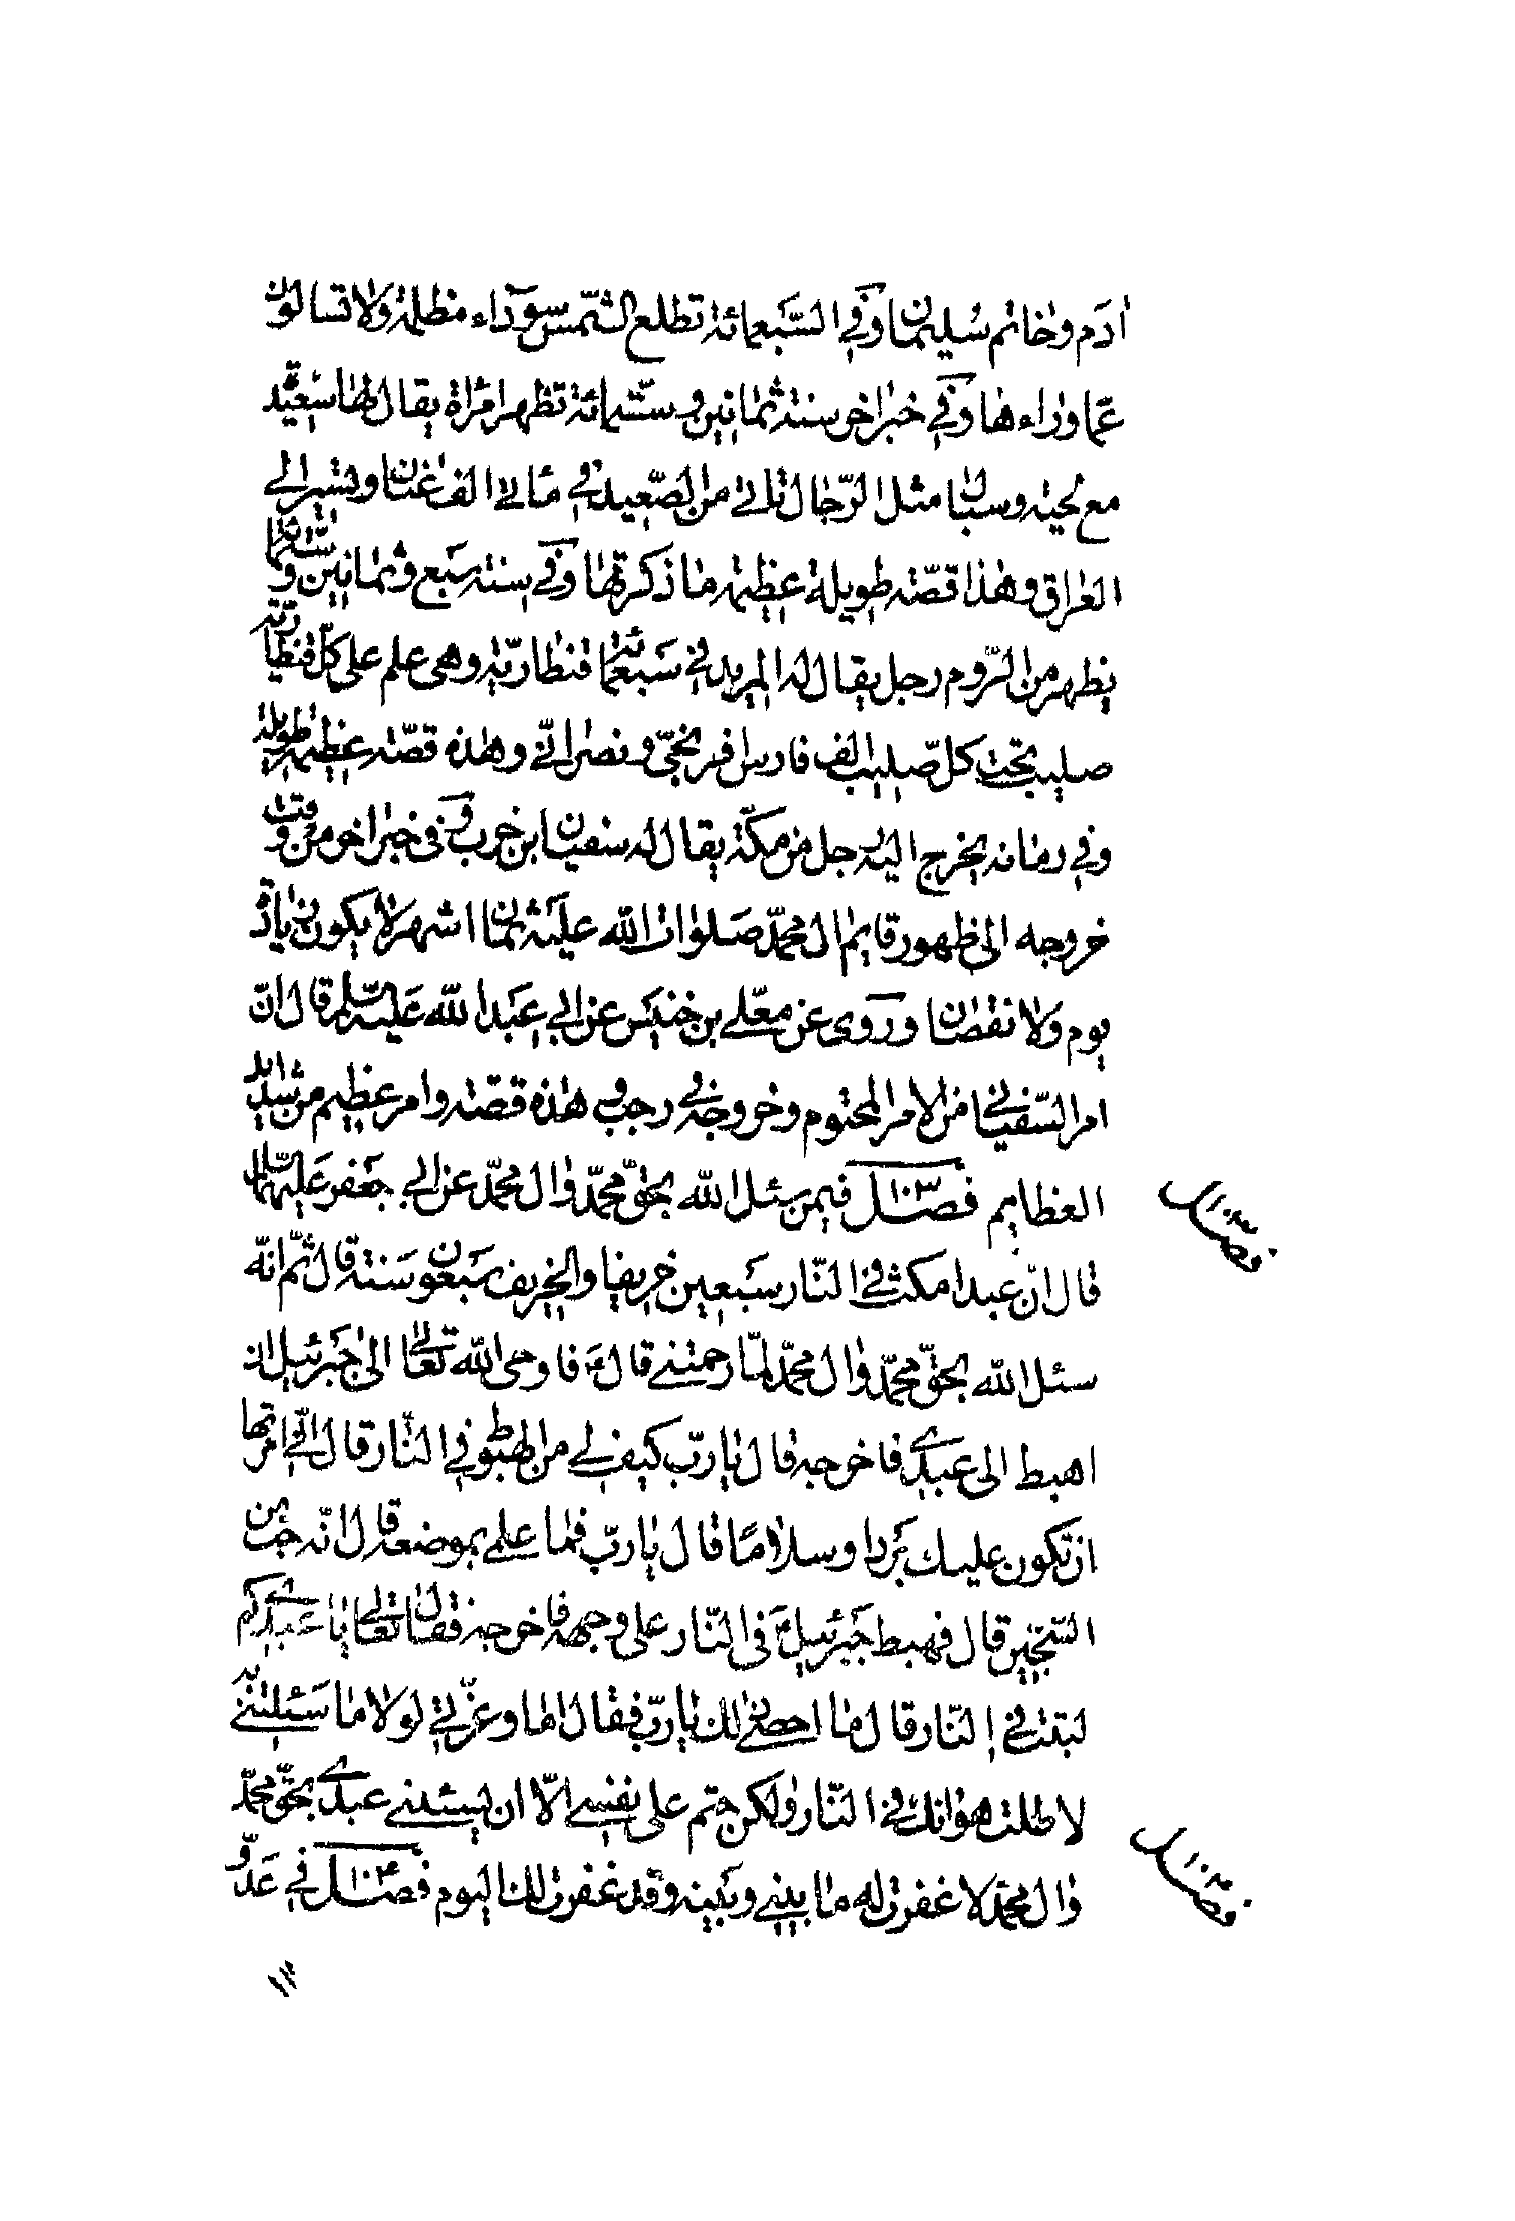 ادَم وخاتم سُليمان وَفي السَّبعمائة تطلع الشّمس سوَدَاء مظلمة وَلا تسالون
عمّا ورٰاءهٰا وَفي خبر اخر سنة ثمٰانين وستّمائة تظهر امرَاة يقال لهٰا سعيدة
مع لحية وسبال مثل الرّجٰال تاتي من الصّعيد في مائتي الف عنان وتسير الى
العراق وهٰذا قصّة طويلة عظيمة مٰا ذكرتهٰا وَفي سنة سَبع وثمٰانين وستّمائة
يظهر من الرّوم رجل يقال له المريد في سَبعمائة قنطاريّة وهي علم على كلّ قنطاريّة
صليب تحت كلّ صليب الف فارس افرنجيّ ونصرانيّ وهٰذه قصّة عظيمة طويلة
وفي زمانه يخرج اليه رجل من مكّة يقال له سفيان ابن حرب وَفى خبر اخر من وقت
خروجه الى ظهور قايم ال محمّد صَلوات الله عليَه ثمانية اشهر لا يكون زيادة
يوم وَلا نقصان وَرَوى عن معلّى بن خنيسَ عن ابي عَبَد الله عَليَه السّلم قال انّ
امر السّفياني من الامر المحتوم وخروجه في رجب وفي هٰذه قصّة وامر عظيم من شدايد
العظايم فصْــل ١٠٣ فيمن سئل الله بحقّ محمّد وٰال محمّد عن ابي جَعفر عَليهمَا السّلام
قال انّ عبدا مكث في النّار سَبعين خريفا والخريف سَبعون سَنة قال ثمّ انّه
سئل الله بحقّ محمّد وٰال محمّد لمّا رحمتني قال عَ فاوحى الله تعالىٰ الىٰ جَبرئيل ان
اهبط الى عبدي فاخرجه قال يٰا ربّ كيف لي من الهبوط في النّار قال انّي امرتها
ان تكون عليك بَردا وسلاٰمًا قال يٰا ربّ فمٰا علمي بموضعه قال انّه في جبّ من
السّجّين قال فهبط جَبرئيل عَ فى النّار على وجهه فاخرجه فقال تعالى يٰا عبدي كم
لبثت في النّار قال مٰا احصي لك يٰا ربّ فقال امٰا وعزّتي لولاٰ مٰا سَئلتني به
لاطلت هوانك في النّار وٰلكن حتم على نفسي الّا ان يسئلني عبدي بحقّ محمّد
وٰال محمّد لا غفرت له مٰا بيني وبَينه وَقد غفرت لك اليوم فصْــل ١٠٤ في عَدوّ
فصل ١٠٣
فصل ١٠٤